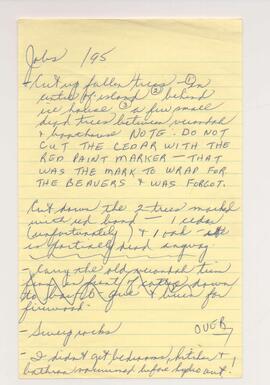 Jobs /95
- Cut up fallen trees - ① In
centre of island ② behind
ice house ③ a few small
dead trees between verandah
& boathouse NOTE: DO NOT
CUT THE CEDAR WITH THE
RED PAINT MARKER - THAT
WAS THE MARK TO WRAP FOR
THE BEAVERS & WAS FORGOT.
Cut down the 2 trees marked
with red band - 1 cedar
(unfortunately) & 1 oak -
is partially dead anyway
- Carry the old verandah
from in front of down
to &
firewood.
- Sweep rocks
OVER
- I didn't get bedrooms, kitchen &
bathroom vacuumed before